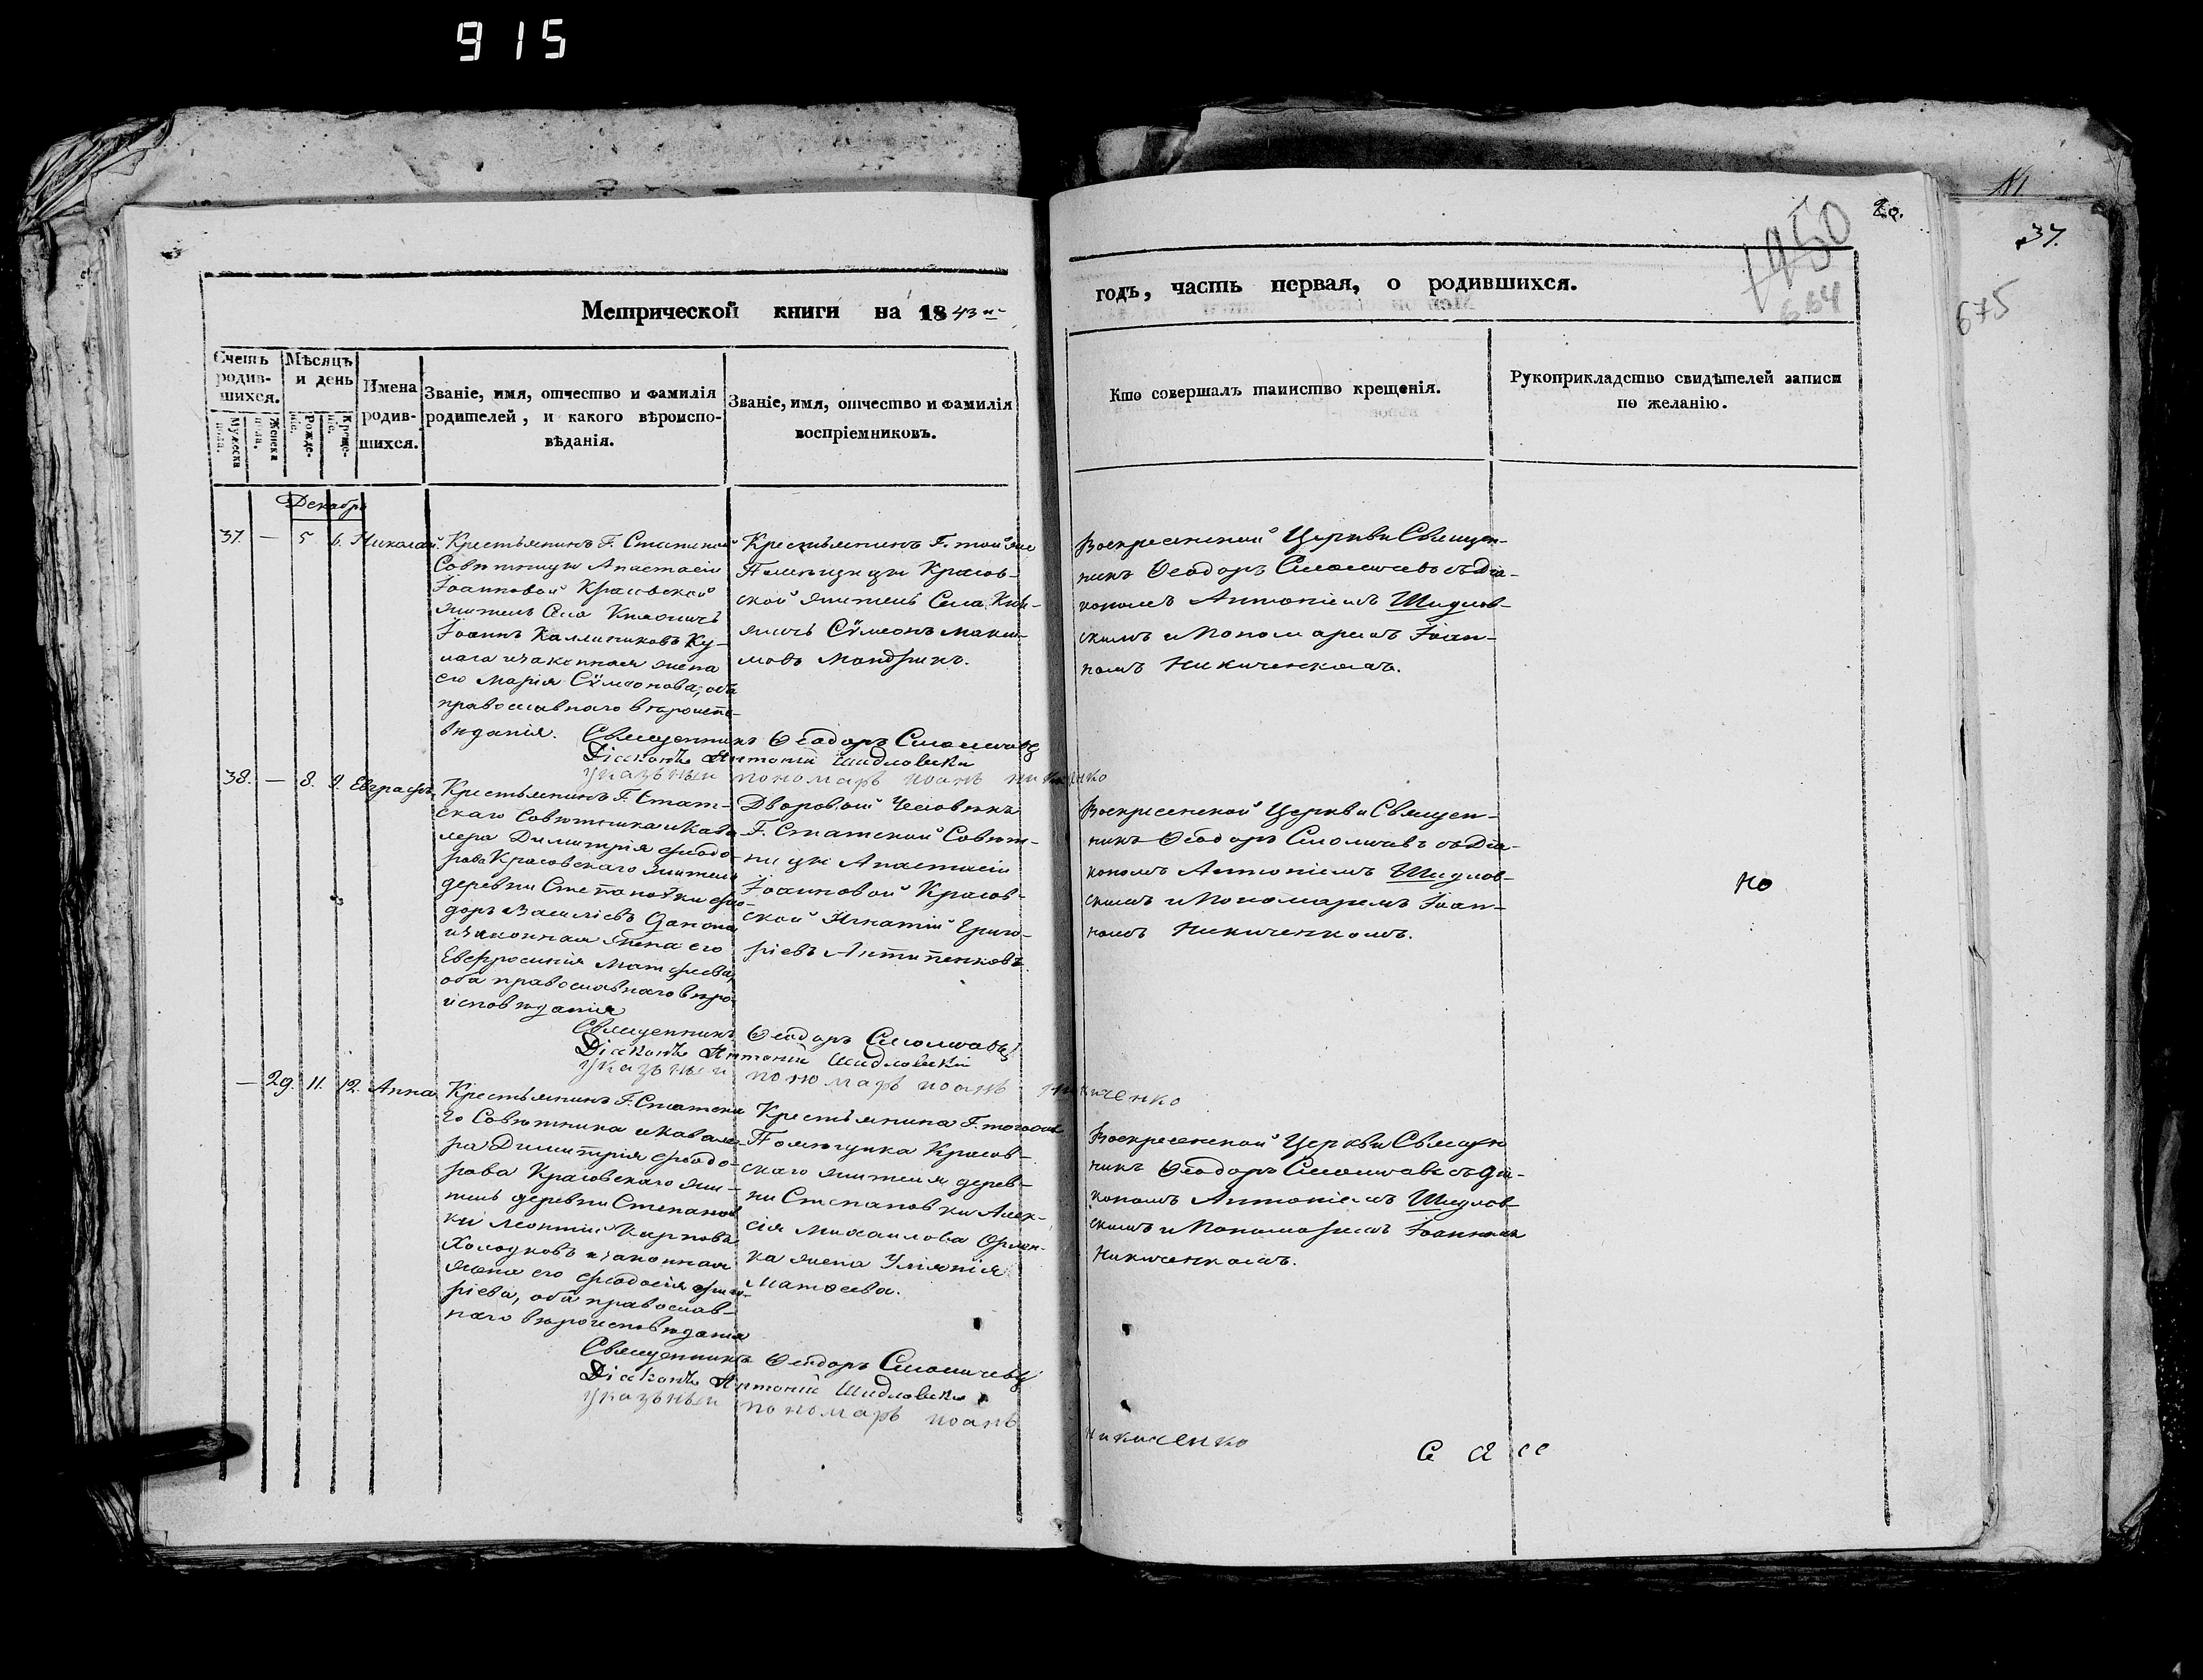 915
Метрической книги на 1843й
годъ, часть первая, о родившихся.
1950
664
20.
37.
675
Счетъ родив-шихся.
Мужеска пола.
Женска пола.
Мѣсяцъ и день
Рожде-нiе.
Креще-нiе.
Имена родив-шихся.
Званiе, имя, отчество и фамилiя
родителей, и какого вѣроиспо-
вѣданiя.
Званiе, имя, отчество и фамилiя
воспрiемниковъ.
Кто совершалъ таинство крещенiя.
Рукоприкладство свидѣтелей записи
по желанiю.
Декабрь
37. — 5 6. Николай.
Крестьянинъ Г. Статской
Совѣтницы Анастасiи
Iоанновой Красовской
житель Села Княжичь
Iоаннъ Каллиниковъ Ку-
лага изаконная жена
его Марiя Сѵмеонова; оба
православнаго вѣроиспо-
вѣданiя.
Крестьянинъ Г. той же
Помѣщицы Красов-
ской житель Села Кня-
жичь Сѵмеонъ Макси-
мовъ Мандрикъ.
Воскресенской Церкви Священ-
никъ Ѳеодоръ Смоличевъ съ Дiа-
кономъ Антонiемъ Шидлов-
скимъ и Пономаремъ Iоан-
номъ Никиченкомъ.
Священникъ Ѳеодоръ Смоличевъ
Дiаконъ Антонiй Шидловскiй
указъный пономаръ иоанъ никиченко
38. — 8. 9. Евграфъ.
Крестьянинъ Г. Стат-
скаго Совѣтника и Кава-
лера Димитрiя Ѳеодо-
рова Красовскаго житель
деревни Степановки Ѳео-
доръ Васильевъ
изаконная жена его
Евфросинiя Матѳеева,
оба православнаго вѣро-
исповѣданiя
Дворовой Человѣкъ
Г. Статской Совѣт-
ницы Анастасiи
Iоанновой Красов-
ской Игнатiй Григо-
рiевъ Антипенковъ.
Воскресенской Церкви Священ-
никъ Ѳеодоръ Смоличевъ съ Дiа-
кономъ Антонiемъ Шидлов-
скимъ и Пономаремъ Iоан-
номъ Никиченкомъ.
но
Священникъ Ѳеодоръ Смоличевъ
Дiаконъ Антонiй Шидловскiй
указъный пономаръ иоанъ никиченко
— 29. 11. 12. Анна
Крестьянинъ Г. Статска
го Совѣтника и Кавале-
ра Димитрiя Ѳеодо-
рова Красовскаго жи-
тель деревни Степанов
ки Леонтiй Карповъ
Холодковъ изаконная
жена его Ѳеодосiя Григо-
рiева, оба православ-
наго вѣроисповѣданiя
Крестьянина Г. тогоже
Помѣщика Красов-
скаго жителя дерев-
ни Степановки Алек-
сiя Михаилова
ка жена Улiянiя
Матѳеева.
Воскресенской Церкви Священ
никъ Ѳеодоръ Смоличевъ съ Дiа-
кономъ Антонiемъ Шидлов-
скимъ и Пономаремъ Iоанномъ
Никиченкомъ.
Священникъ Ѳеодоръ Смоличевъ
Дiаконъ Антонiй Шидловскiй
указъный пономаръ иоанъ
никиченко